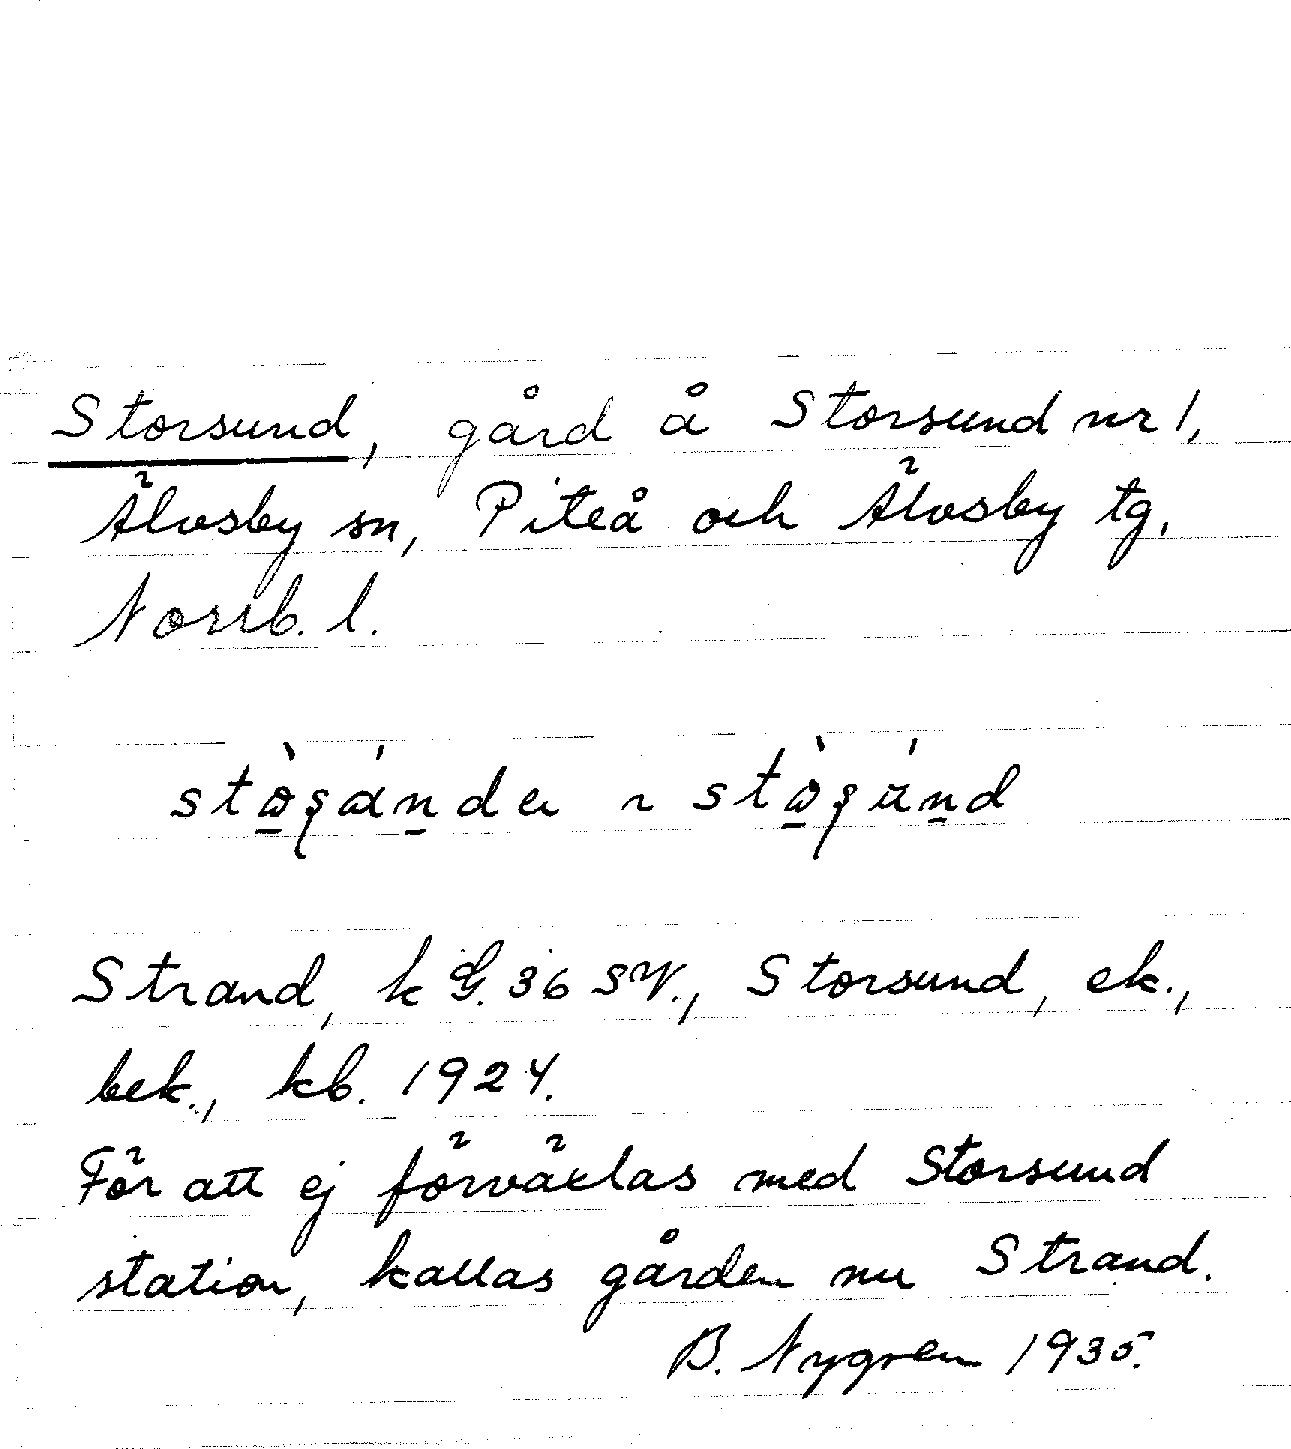 Storsund, gård å Storsund nr 1,
Älvsby sn, Piteå och Älvsby tg,
Norrb. l.
Strand, k G. 36 SV., Storsund, ek.,
bek., kb. 1924.
För att ej förväxlas med Storsund
station, kallas gården nu Strand.
B. Nygren 1935.